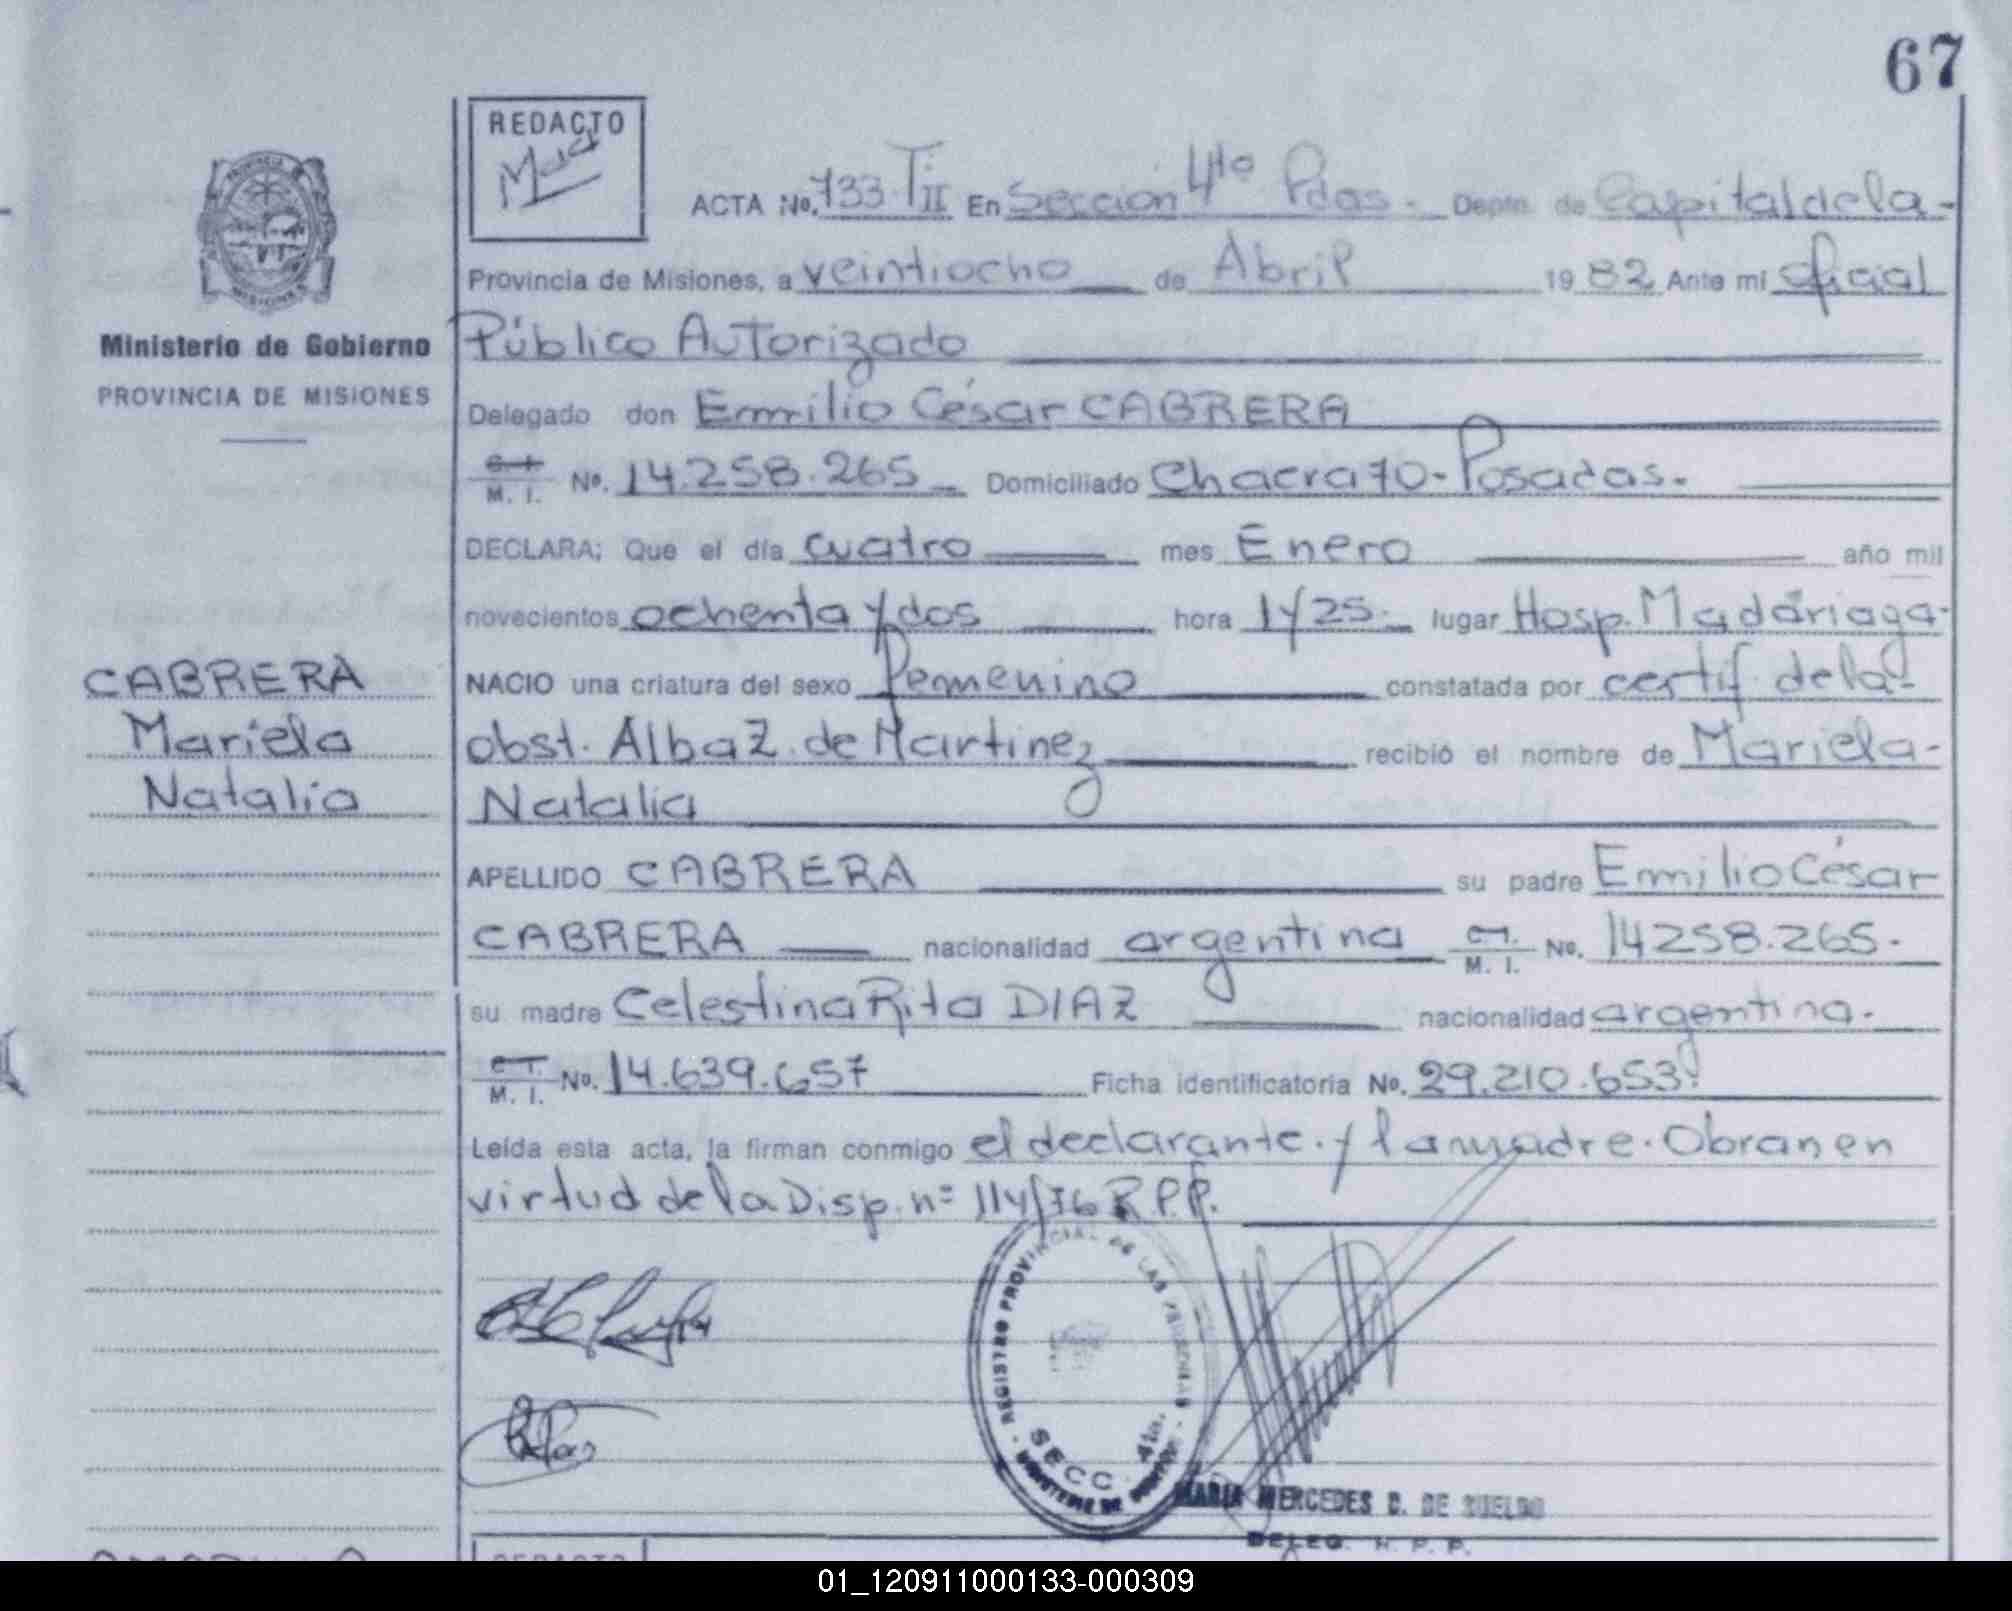 67
REDACTO
ACTA No. 733. T II En Sección 4ta Pdas. Depto. de Capital de la-
Provincia de Misiones, a veintiocho de Abril 1982 Ante mí oficial
Ministerio de Gobierno
PROVINCIA DE MISIONES
Público Autorizado
Delegado don Emilio César CABRERA
M. I. No. 14.258.265 Domiciliado Chacra 70 - Posadas.
DECLARA; Que el día cuatro mes Enero año mil
novecientos ochenta y dos hora 1 y 25. lugar Hosp. Madariaga-
CABRERA
Mariela
Natalia
NACIO una criatura del sexo femenino constatada por certif. de la-
obst. Alba Z. de Martinez recibió el nombre de Mariela-
Natalia
APELLIDO CABRERA su padre Emilio César
CABRERA nacionalidad argentina M. I. No. 14258.265.
su madre Celestina Rita DIAZ nacionalidad argentina.
M. I. No. 14.639.657 Ficha identificatoria No. 29.210.653
Leída esta acta, la firman conmigo el declarante. y la madre. Obran en
virtud de la Disp. nº 114/76 R.P.P.
REGISTRO PROVINCIAL DE LAS PERSONAS
SECC. 4ta.
MARIA MERCEDES D. DE SUELDO
DELEG. R. P. P.
REDACTO
01_120911000133-000309